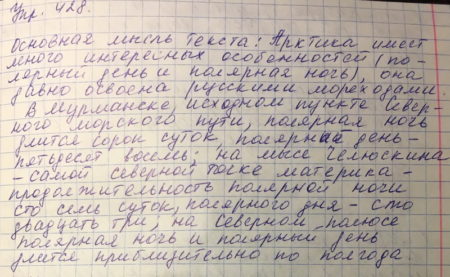 Упр. 428.
Основная мысль текста: Арктика имеет
много интересных особенностей (по-
лярный день и полярная ночь), она
давно освоена русскими мореходами.
В Мурманске, исходном пункте Север-
ного морского пути, полярная ночь
длится сорок суток, полярный день -
петьдесят восемь, на мысе Челюскина
- самой северной точке материка -
продолжительность полярной ночи
сто семь суток, полярного дня - сто
двадцать три, на Северном полюсе
полярная ночь и полярный день
длится приблизительно по полгода.